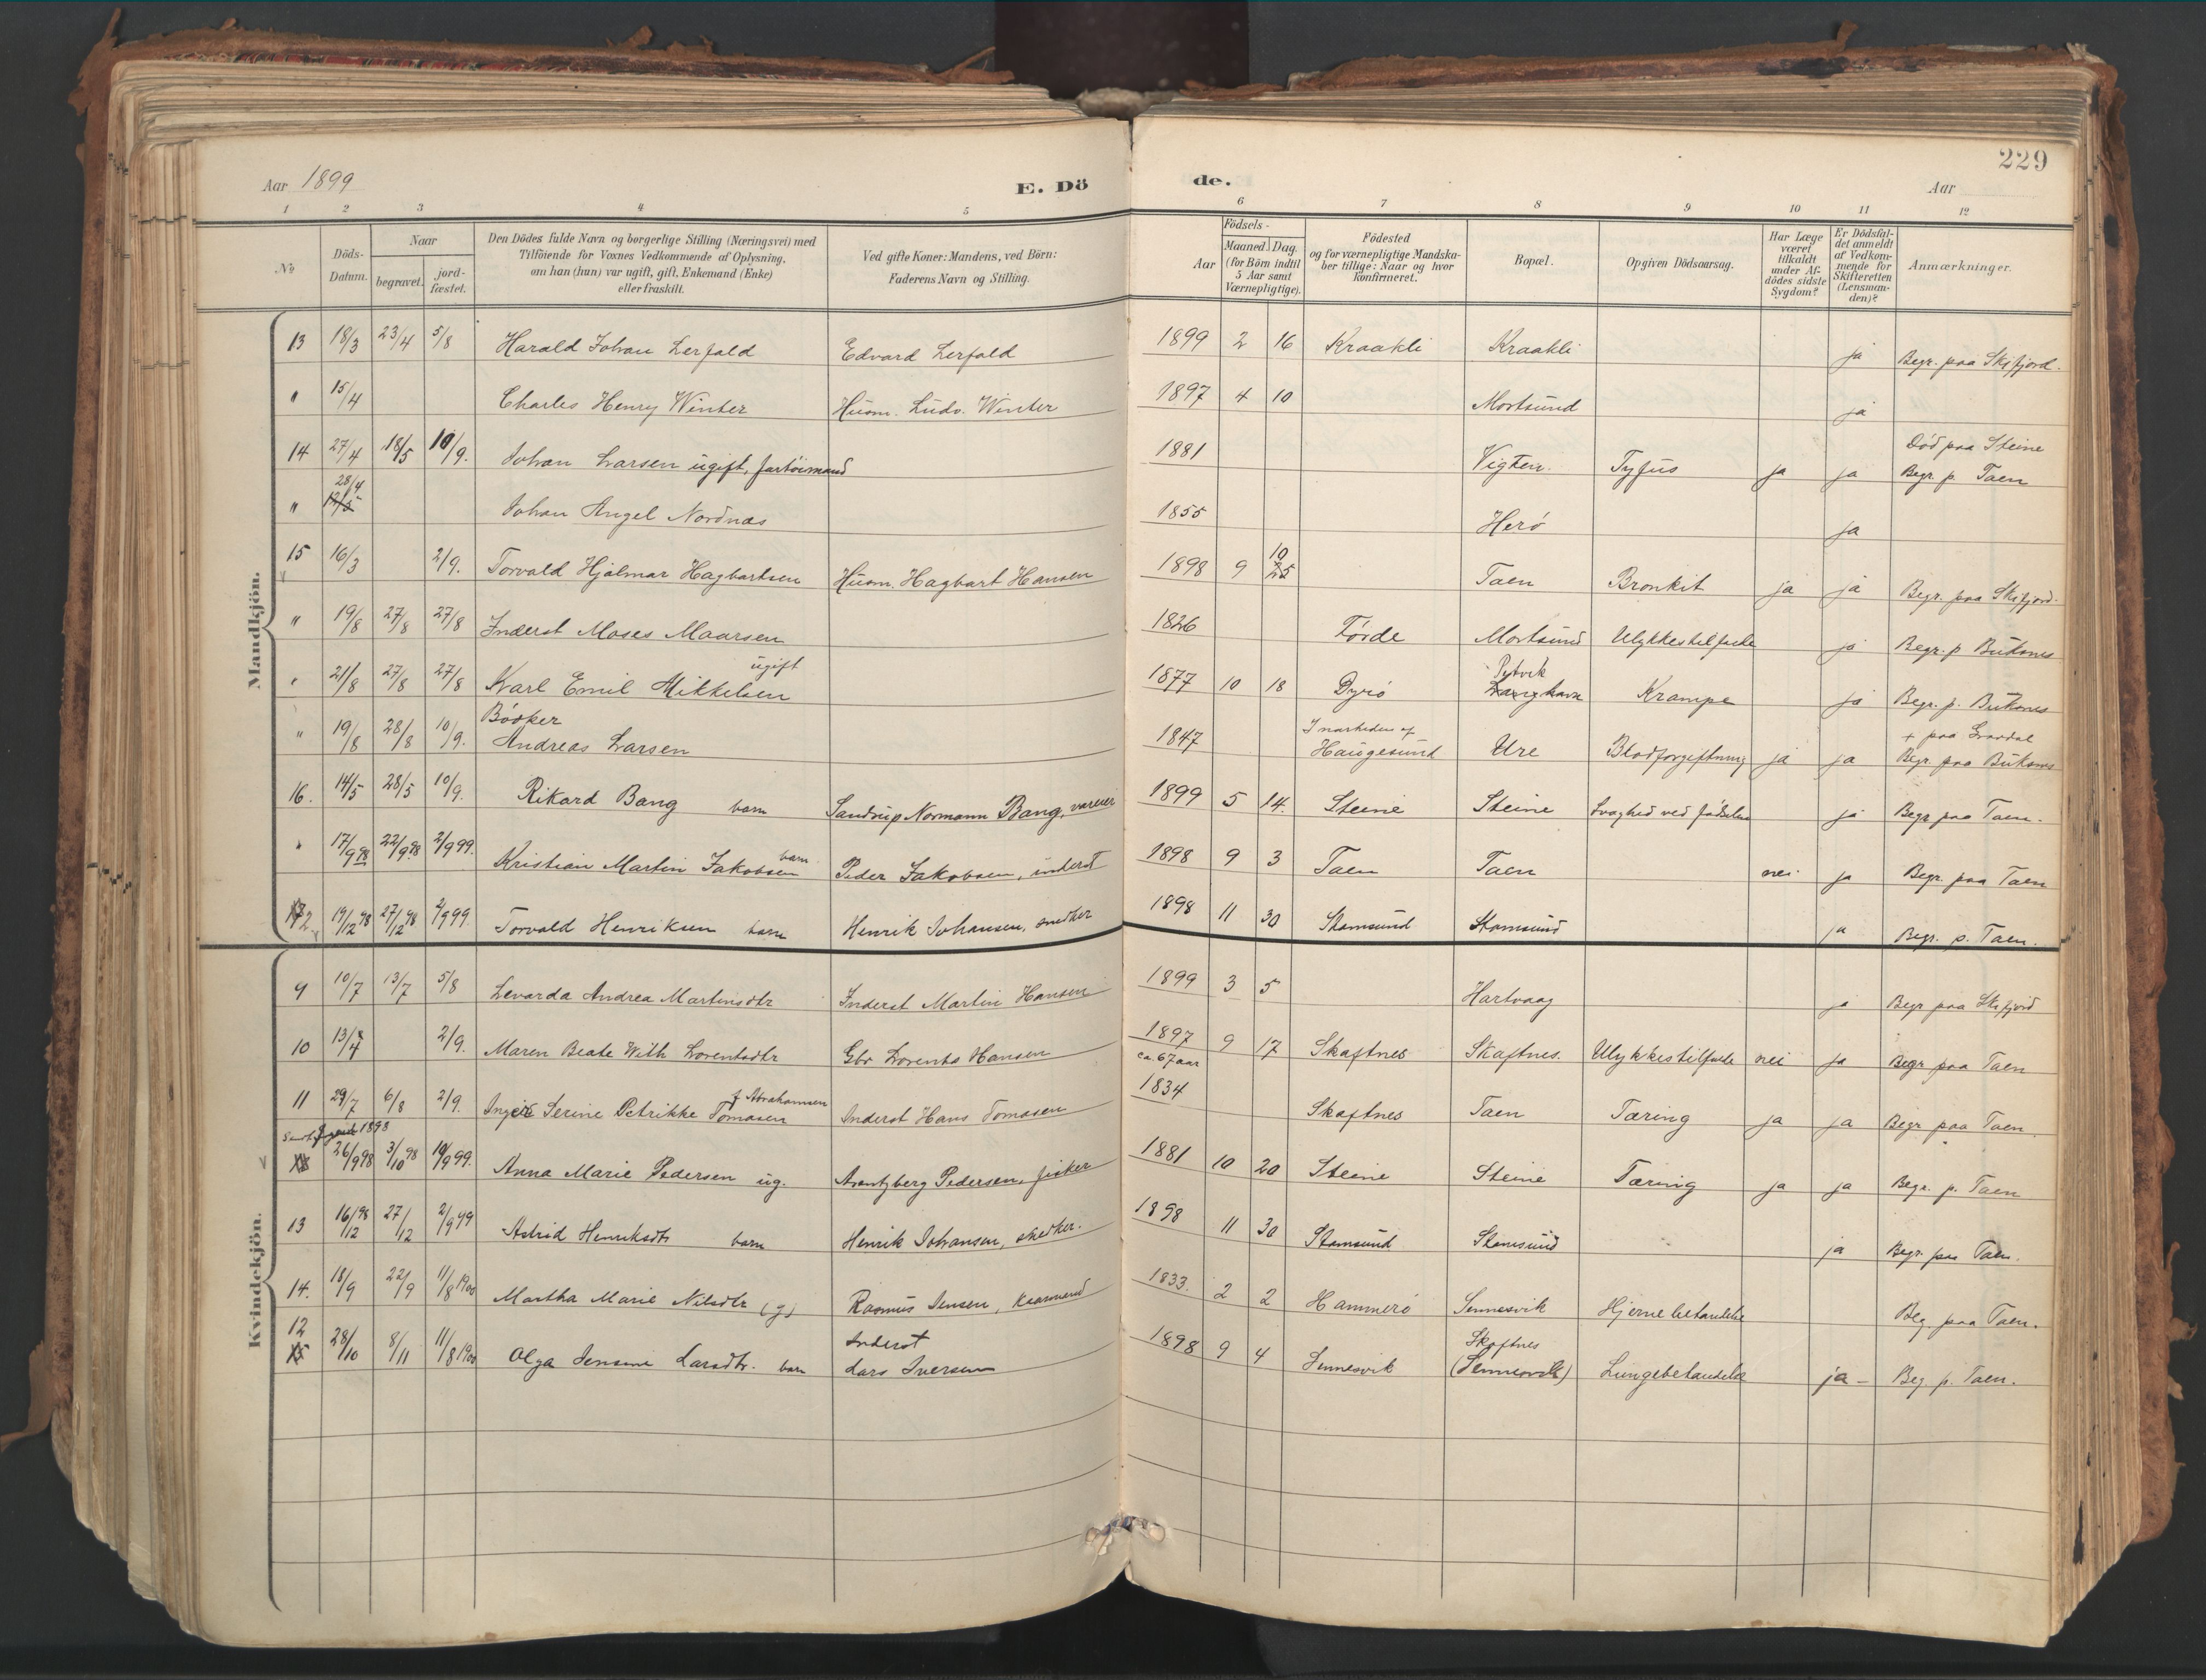 229
Aar 1899 E. Dö de. Aar
1 2 3 4 5 6 7 8 9 10 11 12
№ Döds-Datum. Naar begravet. jord-fæstet. Den Dödes fulde Navn og borgerlige Stilling (Næringsvei) med Tilföiende for Voxnes Vedkommende af Oplysning, om han (hun) var ugift, gift, Enkemand (Enke) eller fraskilt. Ved gifte Koner: Mandens, ved Börn: Faderens Navn og Stilling. Aar Födsels- Maaned Dag. (for Börn indtil 5 Aar samt Værnepligtige). Födested og for værnepligtige Mandska-ber tillige: Naar og hvor konfirmeret. Bopæl. Opgiven Dödsaarsag. Har Læge været tilkaldt under Af-dödes sidste Sygdom? Er Dödsfal-det anmeldt af Vedkom-mende for Skifteretten (Lensman-den)? Anmærkninger.
Mandkjön.
13 18/3 23/4 5/8 Harald Johan Lerfald Edvard Lerfald 1899 2 16 Kraakli Kraakli ja Begr. paa Sksfjord.
" 15/4 Charles Henry Winter Husm. Ludv. Winter 1897 4 10 Mortsund ja
14 27/4 18/5 10/9. Johan Larsen ugift, fartöimand 1881 Vigten Tyfus ja ja Död paa Steine Begr. p. Taen
" 28/4 Johan Angel Nordnæs 1855 Herö ja
15 16/3 2/9. Torvald Hjalmar Hagbartsen Husm. Hagbart Hansen 1898 9 10 25 Taen Bronkit ja ja Begr. paa Sksfjord.
" 19/8 27/8 27/8 Inderst Moses Maarsen 1826 Förde Mortsund Ulykkestilfælde ja Begr. p Buksnes
" 21/8 27/8 27/8 Karl Emil Mikkelsen ugift 1877 10 18 Dyrö Krampe ja Begr. p. Buksnes
" 19/8 28/8 10/9. Bödker Andreas Larsen 1847 I nærheden af Haugesund Ure Blodforgiftning ja ja + paa Gravdal Begr. paa Buksnes
16. 14/5 28/5 10/9. Rikard Bang barn Sandrup Normann Bang, 1899 5 14. Steine Steine Svaghed ved födselen ja Begr paa Taen.
" 17/9 98 22/9 98 2/9 99. Kristian Martin Jakobsen barn Peder Jakobsen, inderst 1898 9 3 Taen Taen nei. ja Begr. paa Taen
19/12 98 27/12 98 2/9 99. Torvald Henriksen barn Henrik Johansen, snedker 1898 11 30 Stamsund Stamsund ja Begr. p. Taen.
Kvindekjön.
9 10/7 13/7 5/8 Levarda Andrea Martinsdtr Inderst Martin Hansen 1899 3 5 Hartvaag ja Begr paa Sksfjord
10 2/9. Maren Beate With Lorentsdtr Gbr Lorents Hansen 1897 9 17 Skaftnes Skaftnes. Ulykkestilfælde nei ja Begr paa Taen
11 29/7 6/8 2/9. Serine Petrikke Tomasen f. Abrahamsen Inderst Hans Tomasen ca. 67 aar 1834 Skaftnes Taen Tæring ja ja Begr paa Taen.
1898
26/9 98 3/10 98 10/9 99. Anna Marie Pedersen ug. Arentzberg Pedersen, fisker 1881 10 20 Steine Steine Tæring ja ja Begr. p. Taen
13 16/12 98 27/12 2/9 99 Astrid Henriksdtr barn Henrik Johansen, snedker. 1898 11 30 Stamsund Stamsund ja Begr. paa Taen.
14. 18/9 22/9 11/8 1900 Martha Marie Nilsdtr (g) Rasmus Jensen, 1833. 2 2 Hammerö Sennesvik Hjernebetændelse Beg. paa Taen.
12 28/10 8/11 11/8 1900 Olga Jensine Larsdtr. barn Inderst Lars Iversen 1898 9 4 Sennesvik Skaftnes (Sennesvik) Lungebetændelse ja - Beg. p. Taen.